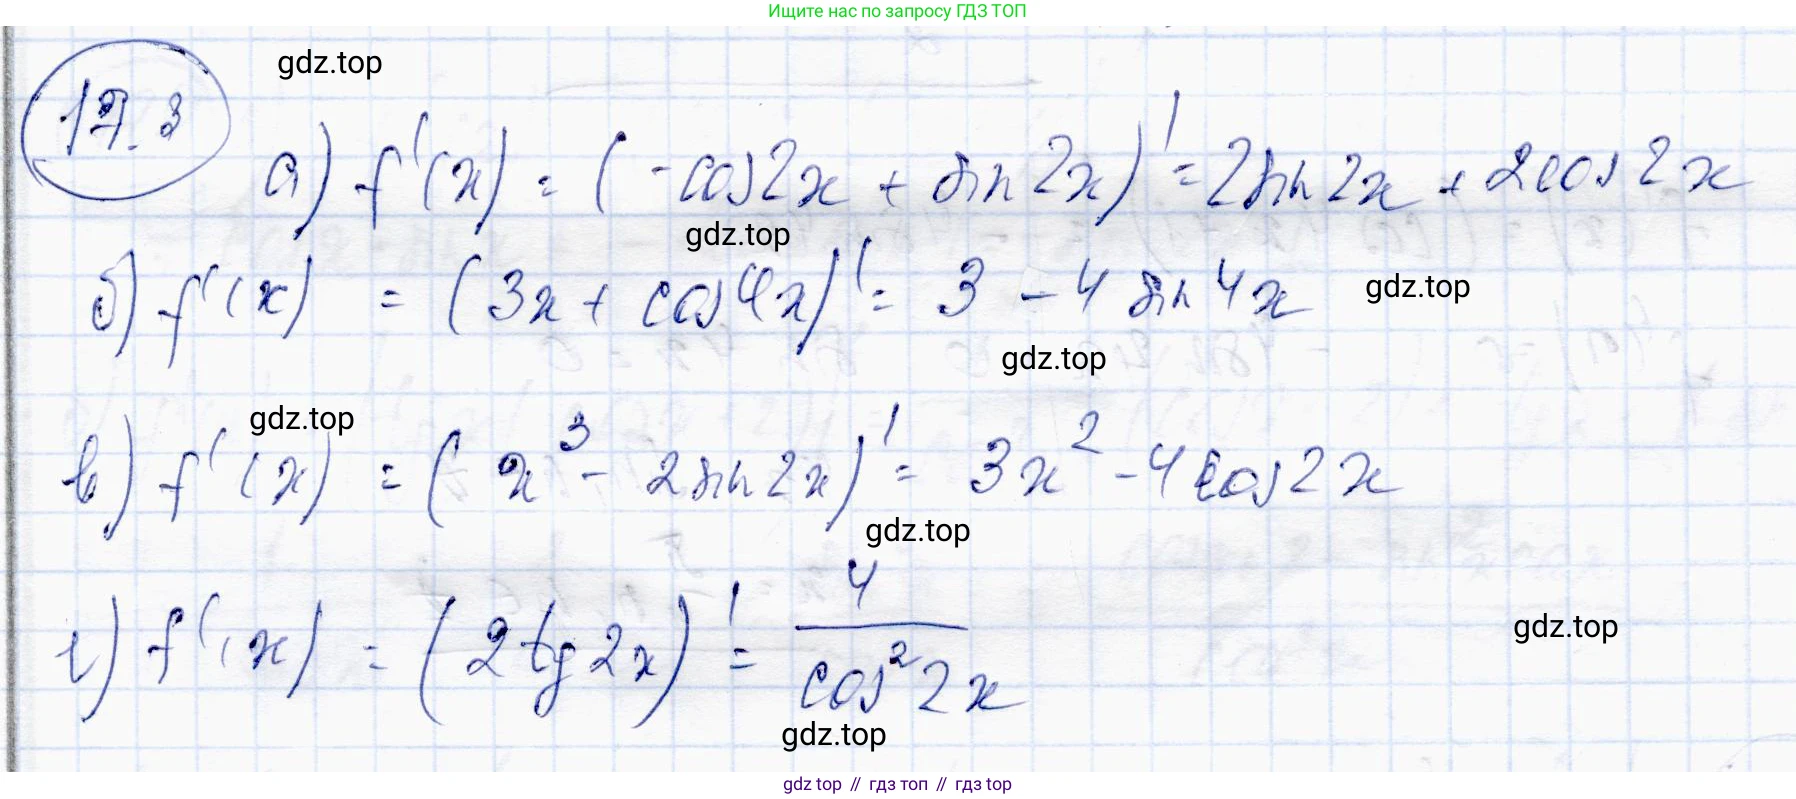 Ищите нас по запросу ГДЗ ТОП
17.3
gdz.top
а) f'(x) = (-cos2x + sin2x)' = 2sin2x + 2cos2x
gdz.top
б) f'(x) = (3x + cos4x)' = 3 - 4 sin4x
gdz.top
gdz.top
gdz.top
в) f'(x) = (x³ - 2sin2x)' = 3x² - 4cos2x
gdz.top
г) f'(x) = (2tg2x)' = 4/cos²2x
gdz.top
gdz.top
gdz.top // гдз топ // гдз top